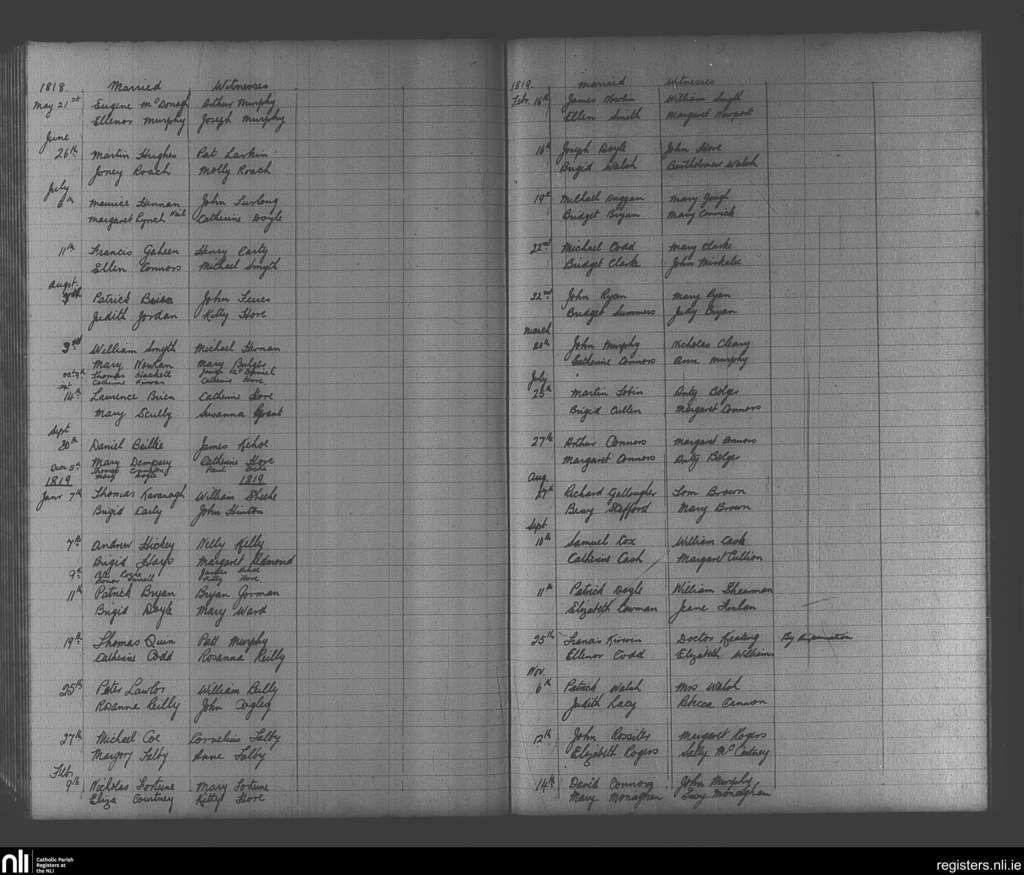 1818. Married Witnesses
May 21st Eugene McDonagh Arthur Murphy
Ellenor Murphy Joseph Murphy
June
26th Martin Hughes Pat Larkin
Joney Roach Molly Roach
July
Maurice Hernan John Furlong
Margaret Lynch Catherine Doyle
11th Francis Gaheen Henry Carty
Ellen Connors Michael Smyth
Augst
Patrick John
Judith Jordan Kitty Hore
3rd William Smyth Michael Hernan
Mary Nowlan Mary Bolger
Thomas Hackett
Catherine Kirwan Catherine Hore
14th Laurence Brien Catherine Hore
Mary Scully Susanna Grant
Sept
20th Daniel James Kehoe
Mary Dempsey Catherine Hore
Decr 5th Thomas
1819 Mary Doyle 1819
Janr 7th Thomas Kavanagh William Sheehe
Brigid Carly John Hinton
7th Andrew Hickey Nelly Kelly
Brigid Hays Margaret Redmond
9th
Kitty Hore
11th Patrick Bryan Bryan Gorman
Brigid Doyle Mary Ward
19th Thomas Quin Patt Murphy
Catherine Codd Rosanna Reilly
25th Peter Lawlor William Reilly
Rosanne Reilly John
27th Michael Coe Cornelius Talby
Margory Talby Anne Talby
Feb
9th Nicholas Fortune Mary Fortune
Eliza Courtney Kitty Hore
1819 Married Witnesses
Febr. 16th James Nowlin William Smyth
Ellen Smith Margaret Newport
16th Joseph Doyle John Hore
Brigid Walsh Walsh
19th Michael Duggan Mary Gough
Bridget Bryan Mary Connick
22nd Michael Codd Mary Clarke
Bridget Clarke John
22nd John Ryan Mary Ryan
Bridget Summers Judy Bryan
March
John Murphy Nicholas Cleary
Catherine Connors Anne Murphy
July
25th Martin Tobin Anty Bolger
Brigid Cullen Margaret Connors
27th Arthur Connors Margaret Connors
Margaret Connors Anty Bolger
Aug
Richard Gallougher Tom Brown
Stafford Mary Brown
Sept
10th Samuel Cox William Cash
Catherine Cash Margaret Cullion
11th Patrick Doyle William Shearman
Elizabeth Cowman Jeane
25th Francis Kirwin Doctor Keating By dispensation
Ellenor Codd Elizabeth Williams
Nov.
6th Patrick Walsh Mrs Walsh
Judith Lacy Rebecca Cannon
12th John Rossiter Margaret Rogers
Elizabeth Rogers Sally McCartney
14th David Connors John Murphy
Mary Monaghan Lucy Monaghan
nli Catholic Parish
Registers at
the NLI
registers.nli.ie